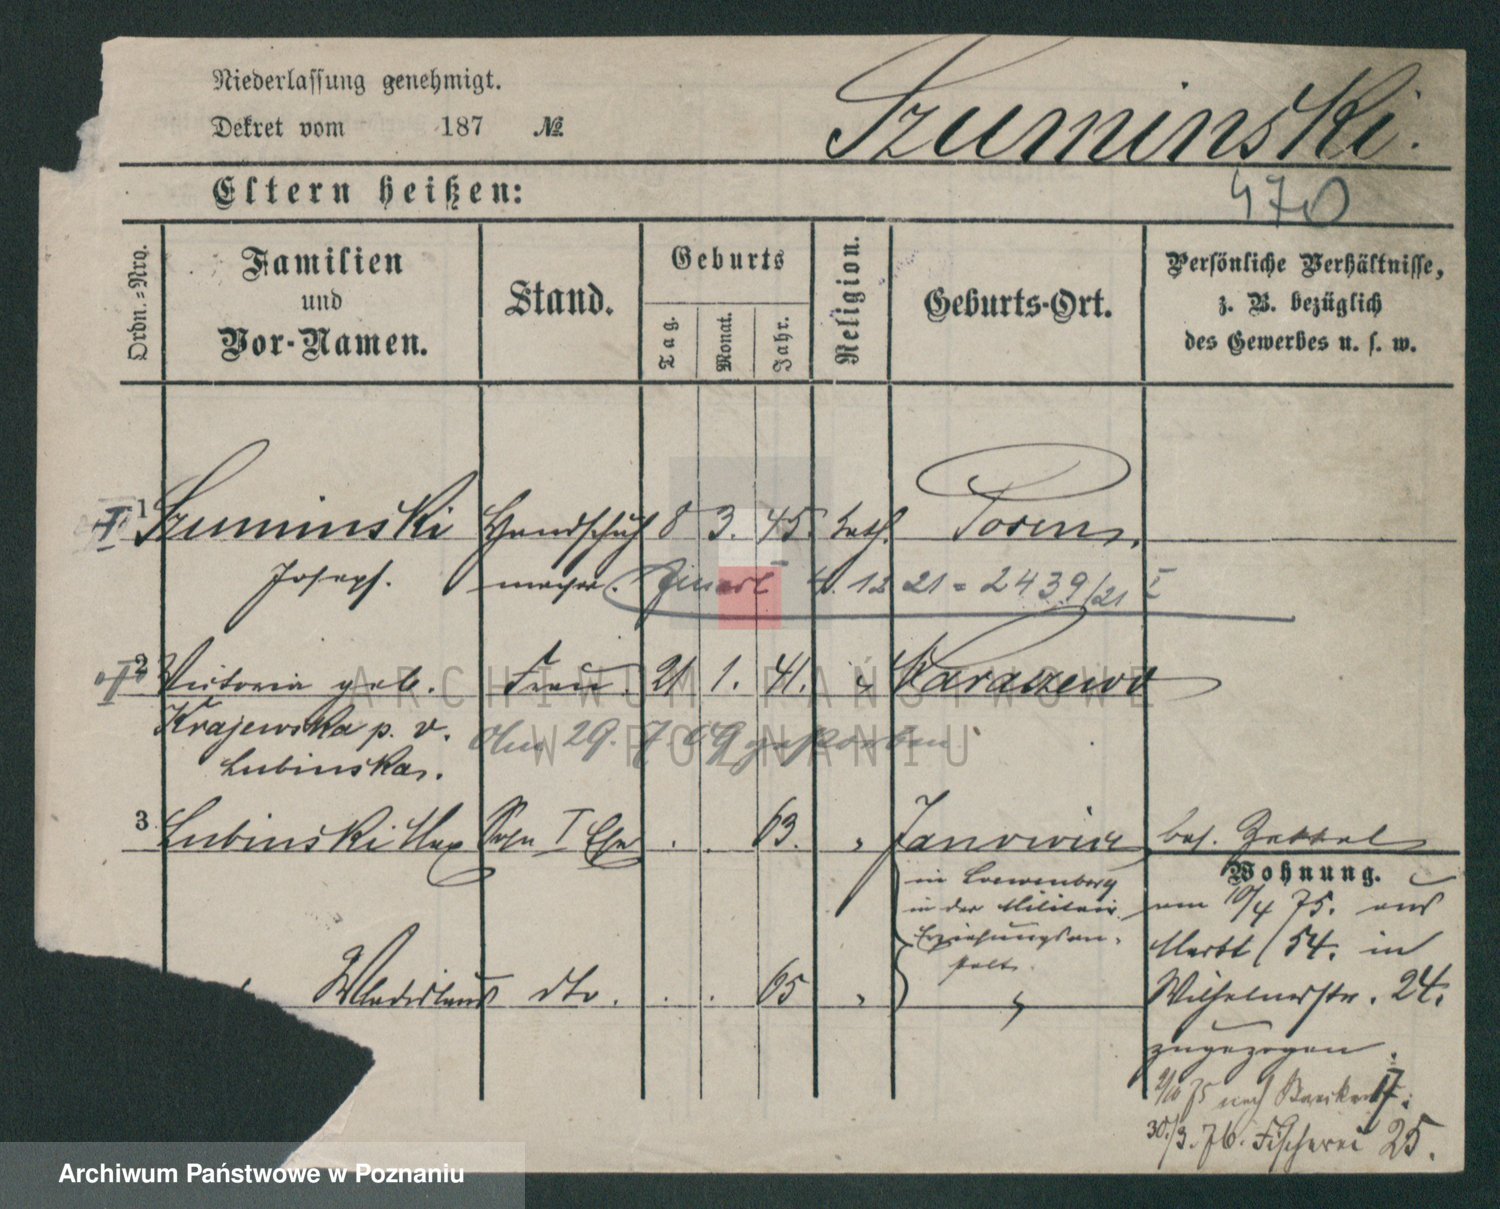 Niederlassung genehmigt.
Dekret vom 187 №
Szuminski.
Eltern heißen:
470
Ordn.=Nro.
Familien
und
Vor-Namen.
Stand.
Geburts
Tag.
Monat.
Jahr.
Religion.
Geburts-Ort.
Persönliche Verhältnisse,
z. B. bezüglich
des Gewerbes u. s. w.
I 1 Szuminski Handschuh 8 3. 45. kath. Posen.
Joseph. macher. 4. 12 21 = 2439/21 I
I 2 Victoria geb. Frau. 21 1. 41. " Karaczewo
Krajewska p. v. Am 29. 7. 09 gestorben
Lubinska.
3 Lubinski Max Sohn I Ehe . . 63. " Janowiec bes. Zettel
Wohnung.
in Loewenberg
in der Militair
Erziehungsan-
stalt.
am 10/4 75. aus
Markt 54. in
Wladislaus dto. . . 65 " " Wilhelmstr. 24.
zugezogen.
2/10 75 nach 17.
30./3. 76. Fischerei 25.
ARCHIWUM PAŃSTWOWE
W POZNANIU
Archiwum Państwowe w Poznaniu